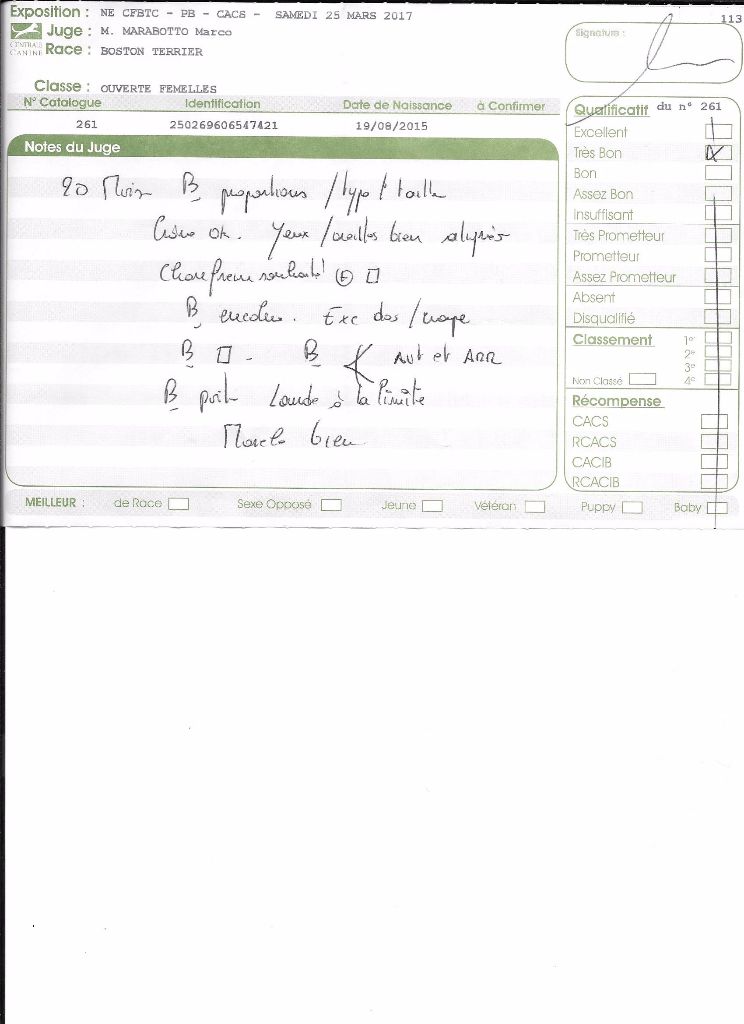 113
Exposition : NE CFBTC - PB - CACS - SAMEDI 25 MARS 2017
Juge : M. MARABOTTO Marco
CENTRALE CANINE
Race : BOSTON TERRIER
Signature :
Classe : OUVERTE FEMELLES
N° Catalogue Identification Date de Naissance à Confirmer
261 250269606547421 19/08/2015
Notes du Juge
20 Mois B proportions / type / taille
Crâne ok. Yeux / oreilles bien
Chanfrein souhaité
B encolure. Exc dos / croupe
B B Avt et Arr
B poil à la limite
Marche bien
Qualificatif du n° 261
Excellent
Très Bon X
Bon
Assez Bon
Insuffisant
Très Prometteur
Prometteur
Assez Prometteur
Absent
Disqualifié
Classement 1e
2e
3e
Non Classé 4e
Récompense
CACS
RCACS
CACIB
RCACIB
MEILLEUR : de Race Sexe Opposé Jeune Vétéran Puppy Baby